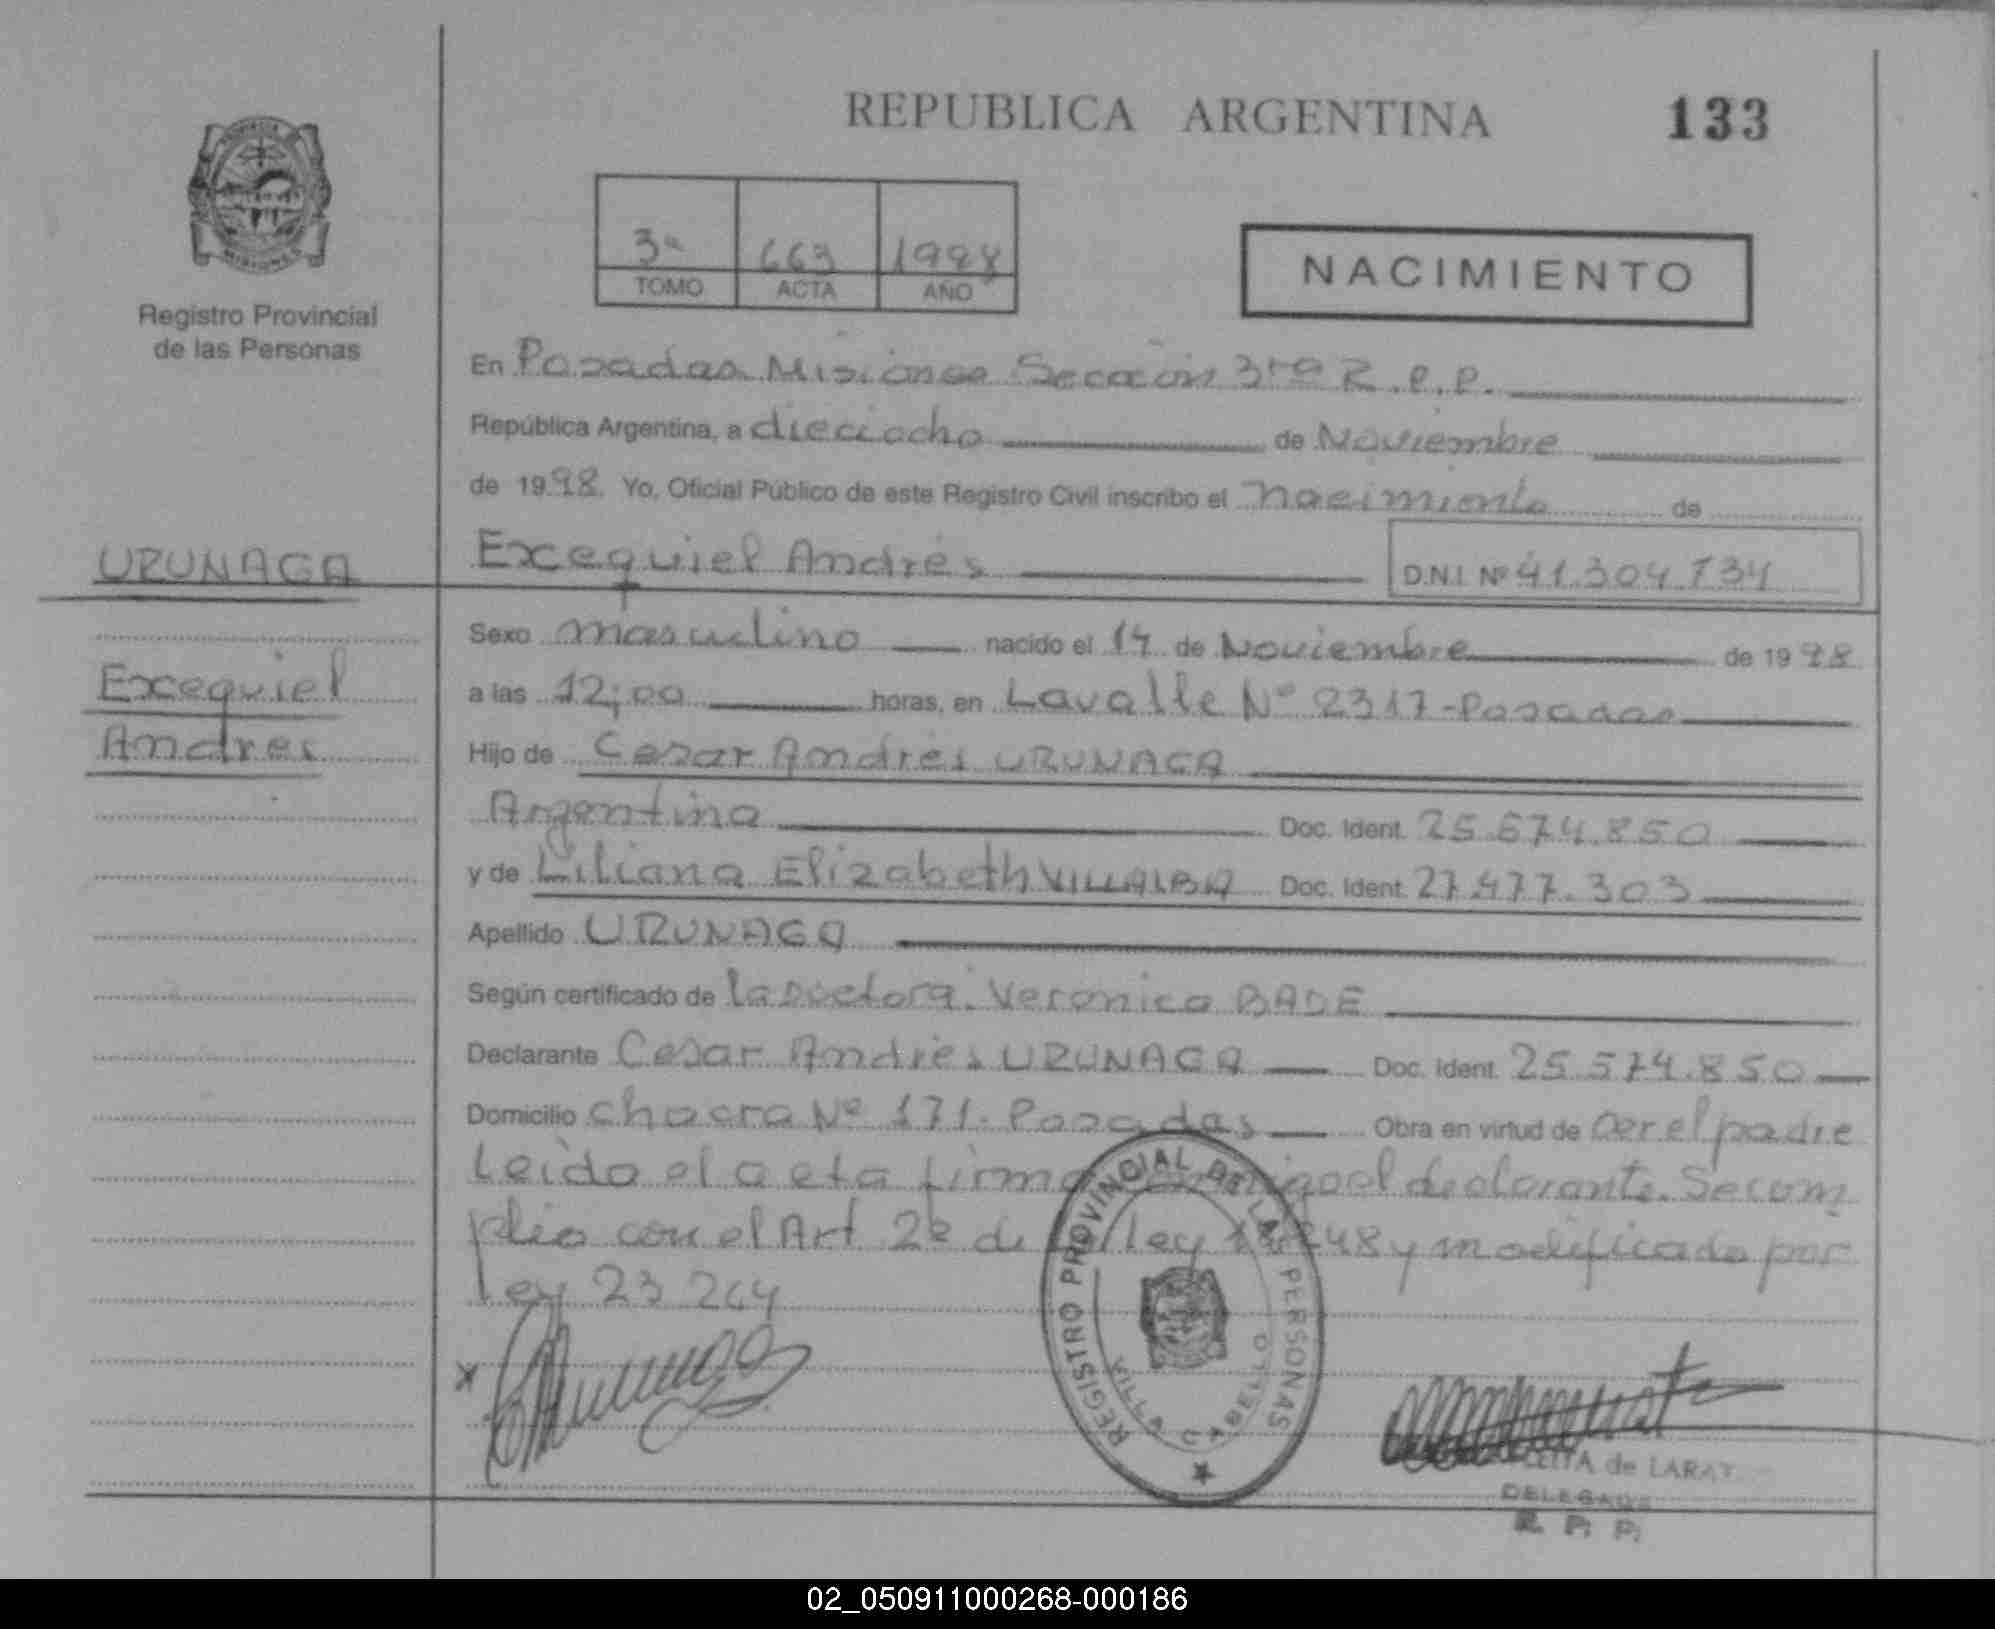 REPUBLICA ARGENTINA 133
PROVINCIA
MISIONES
Registro Provincial
de las Personas
3ª 663 1998
TOMO ACTA AÑO
NACIMIENTO
En Posadas Misiones Sección 3ra R.P.P.
República Argentina, a dieciocho de Noviembre
de 1998. Yo, Oficial Público de este Registro Civil inscribo el nacimiento de
URUNAGA
Excequiel Andrés D.N.I. Nº 41.304.734
Sexo masculino nacido el 14 de Noviembre de 1998
Excequiel
Andres
a las 12,00 horas, en Lavalle Nº 2317-Posadas
Hijo de Cesar Andrés URUNAGA
Argentina Doc. Ident. 25.574.850
y de Liliana Elizabeth VILLALBA Doc. Ident. 27.477.303
Apellido URUNAGA
Según certificado de la Doctora. Veronica BADE
Declarante Cesar Andrés URUNAGA Doc. Ident. 25.574.850
Domicilio Chacra Nº 171. Posadas Obra en virtud de ser el padre
Leido el acta firma el declarante. Se cum
plio con el Art 28 de ley 18248 y modificado por
ley 23 264
REGISTRO PROVINCIAL DE LAS PERSONAS
VILLA CABELLO
de LARAT
DELEGADA
R. P. P.
02_050911000268-000186